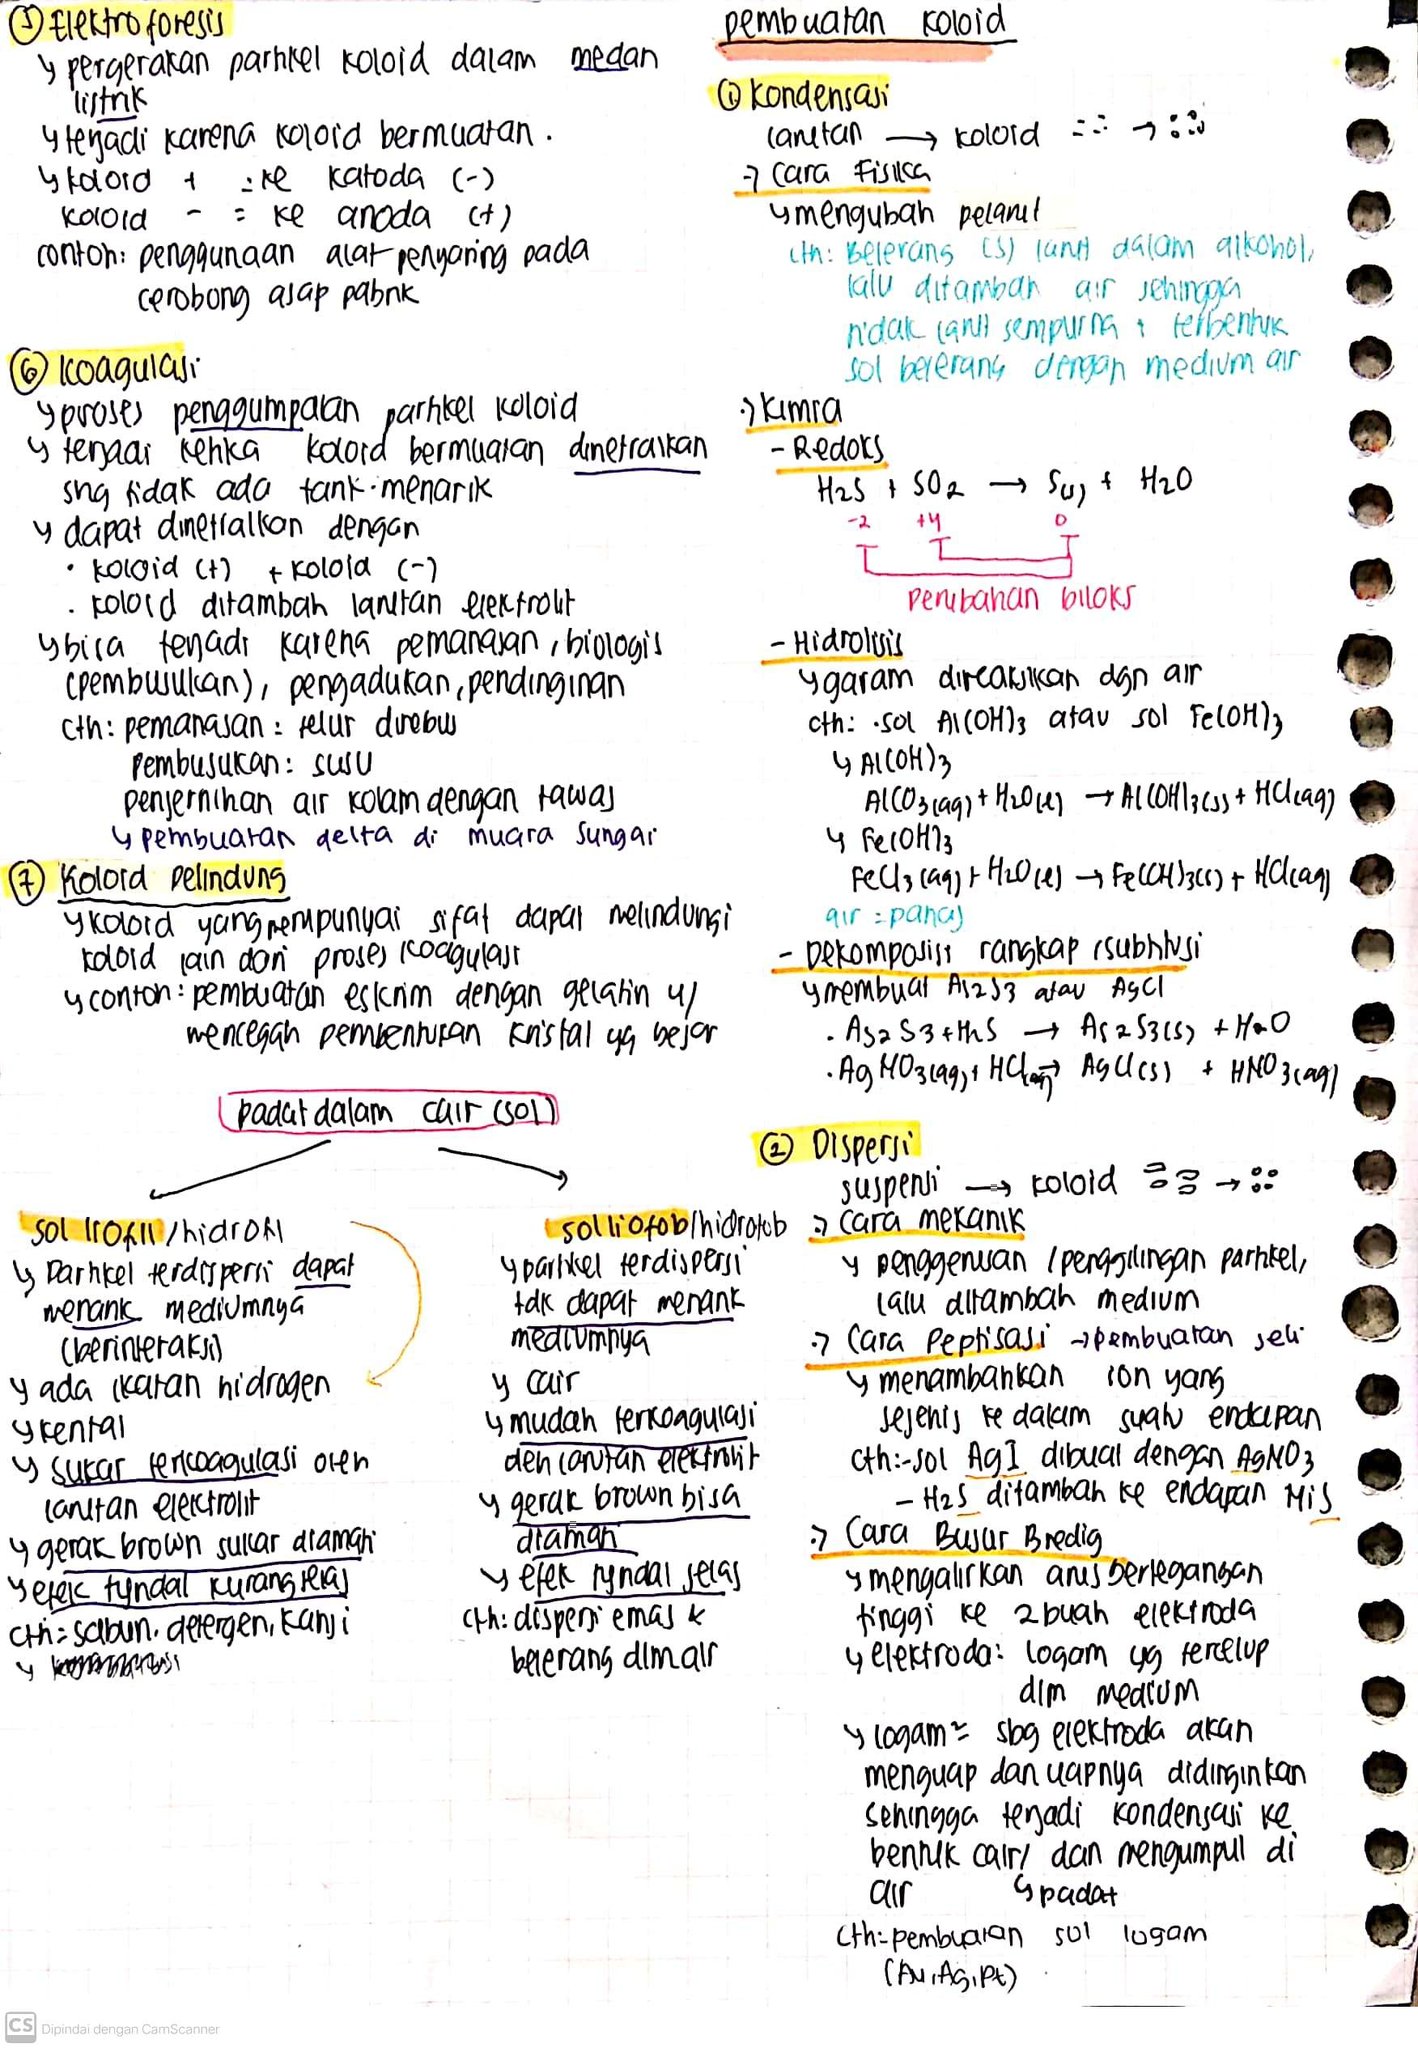 ⑤ Elektroforesis
↳ pergerakan partikel koloid dalam medan
listrik
↳ terjadi karena koloid bermuatan.
↳ koloid + : ke katoda (-)
koloid - = ke anoda (+)
contoh: penggunaan alat penyaring pada
cerobong asap pabrik
⑥ Koagulasi
↳ proses penggumpalan partikel koloid
↳ terjadi ketika koloid bermuatan dinetralkan
shg tidak ada tarik-menarik
↳ dapat dinetralkan dengan
• koloid (+) + koloid (-)
• koloid ditambah larutan elektrolit
↳ bisa terjadi karena pemanasan, biologis
(pembusukan), pengadukan, pendinginan
cth: pemanasan: telur direbus
pembusukan: susu
penjernihan air kolam dengan tawas
↳ pembuatan delta di muara sungai
⑦ Koloid Pelindung
↳ koloid yang mempunyai sifat dapat melindungi
koloid lain dari proses koagulasi
↳ contoh: pembuatan eskrim dengan gelatin u/
mencegah pembentukan kristal yg besar
padat dalam cair (sol)
sol liofil/hidrofil
↳ Partikel terdispersi dapat
menarik mediumnya
(berinteraksi)
↳ ada ikatan hidrogen
↳ kental
↳ sukar terkoagulasi oleh
larutan elektrolit
↳ gerak brown sukar diamati
↳ efek tyndal kurang jelas
cth: sabun, detergen, kanji
sol liofob/hidrofob
↳ partikel terdispersi
tdk dapat menarik
mediumnya
↳ cair
↳ mudah terkoagulasi
deh larutan elektrolit
↳ gerak brown bisa
diamati
↳ efek tyndal jelas
cth: dispersi emas &
belerang dlm air
pembuatan koloid
① Kondensasi
larutan → koloid
:) Cara Fisika
↳ mengubah pelarut
cth: Belerang (S) larut dalam alkohol,
lalu ditambah air sehingga
tidak larut sempurna & terbentuk
sol belerang dengan medium air
:) Kimia
- Redoks
H2S + SO2 → S(s) + H2O
-2 +4 0
perubahan biloks
- Hidrolisis
↳ garam direaksikan dgn air
cth: •sol Al(OH)3 atau sol Fe(OH)3
↳ Al(OH)3
AlCO3(aq) + H2O(l) → Al(OH)3(s) + HCl(aq)
↳ Fe(OH)3
FeCl3(aq) + H2O(l) → Fe(OH)3(s) + HCl(aq)
air = panas
- Dekomposisi rangkap /subtitusi
↳ membuat As2S3 atau AgCl
• As2S3 + H2S → As2S3(s) + H2O
• AgNO3(aq) + HCl(aq) → AgCl(s) + HNO3(aq)
② Dispersi
suspensi → koloid
:) Cara Mekanik
↳ penggerusan /penggilingan partikel,
lalu ditambah medium
:) Cara Peptisasi → pembuatan seli
↳ menambahkan ion yang
sejenis ke dalam suatu endapan
cth:-sol AgI dibuat dengan AgNO3
- H2S ditambah ke endapan NiS
:) Cara Busur Bredig
↳ mengalirkan arus bertegangan
tinggi ke 2 buah elektroda
↳ elektroda: logam yg tercelup
dlm medium
↳ logam² sbg elektroda akan
menguap dan uapnya didinginkan
sehingga terjadi kondensasi ke
bentuk cair/ dan mengumpul di
air ↳ padat
cth: pembuatan sol logam
(Au, Ag, Pt)
CS Dipindai dengan CamScanner